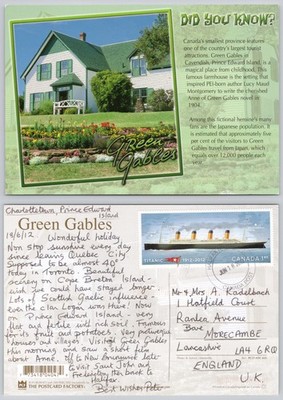 DID YOU KNOW?
Canada's smallest province features
one of the country's largest tourist
attractions. Green Gables of
Cavendish, Prince Edward Island, is a
magical place from childhood. This
famous farmhouse is the setting that
inspired PEI-born author Lucy Maud
Montgomery to write the cherished
Anne of Green Gables novel in
1904.
Among this fictional heroine's many
fans are the Japanese population. It
is estimated that approximately five
per cent of the visitors to Green
Gables travel from Japan, which
equals over 12,000 people each
year.
Green
Gables
Charlottetown, Prince Edward
Island
Green Gables
19/6/12
Wonderful holiday
Non stop sunshine every day
since leaving Quebec City
Supposed to be almost 40°
today in Toronto. Beautiful
scenery on Cape Breton Island -
wish we could have stayed longer.
Lots of Scottish Gaelic influence -
even the clan Logan was here! Now
on Prince Edward Island - very
flat and fertile with rich soil. Famous
for its fruit and potatoes. Very picturesque
houses and villages. Visited Green Gables
this morning and saw a short film
about Anne. Off to New Brunswick later
to visit Saint John and
Fredericton, then back to
Halifax.
Best Wishes Peter
TITANIC 1912-2012 CANADA
Mr & Mrs A Radelbach
1 Hatfield Court
Ranlea Avenue
Bare
MORECAMBE
Lancashire LA4 6RQ
ENGLAND
U.K.
THE POSTCARD FACTORY